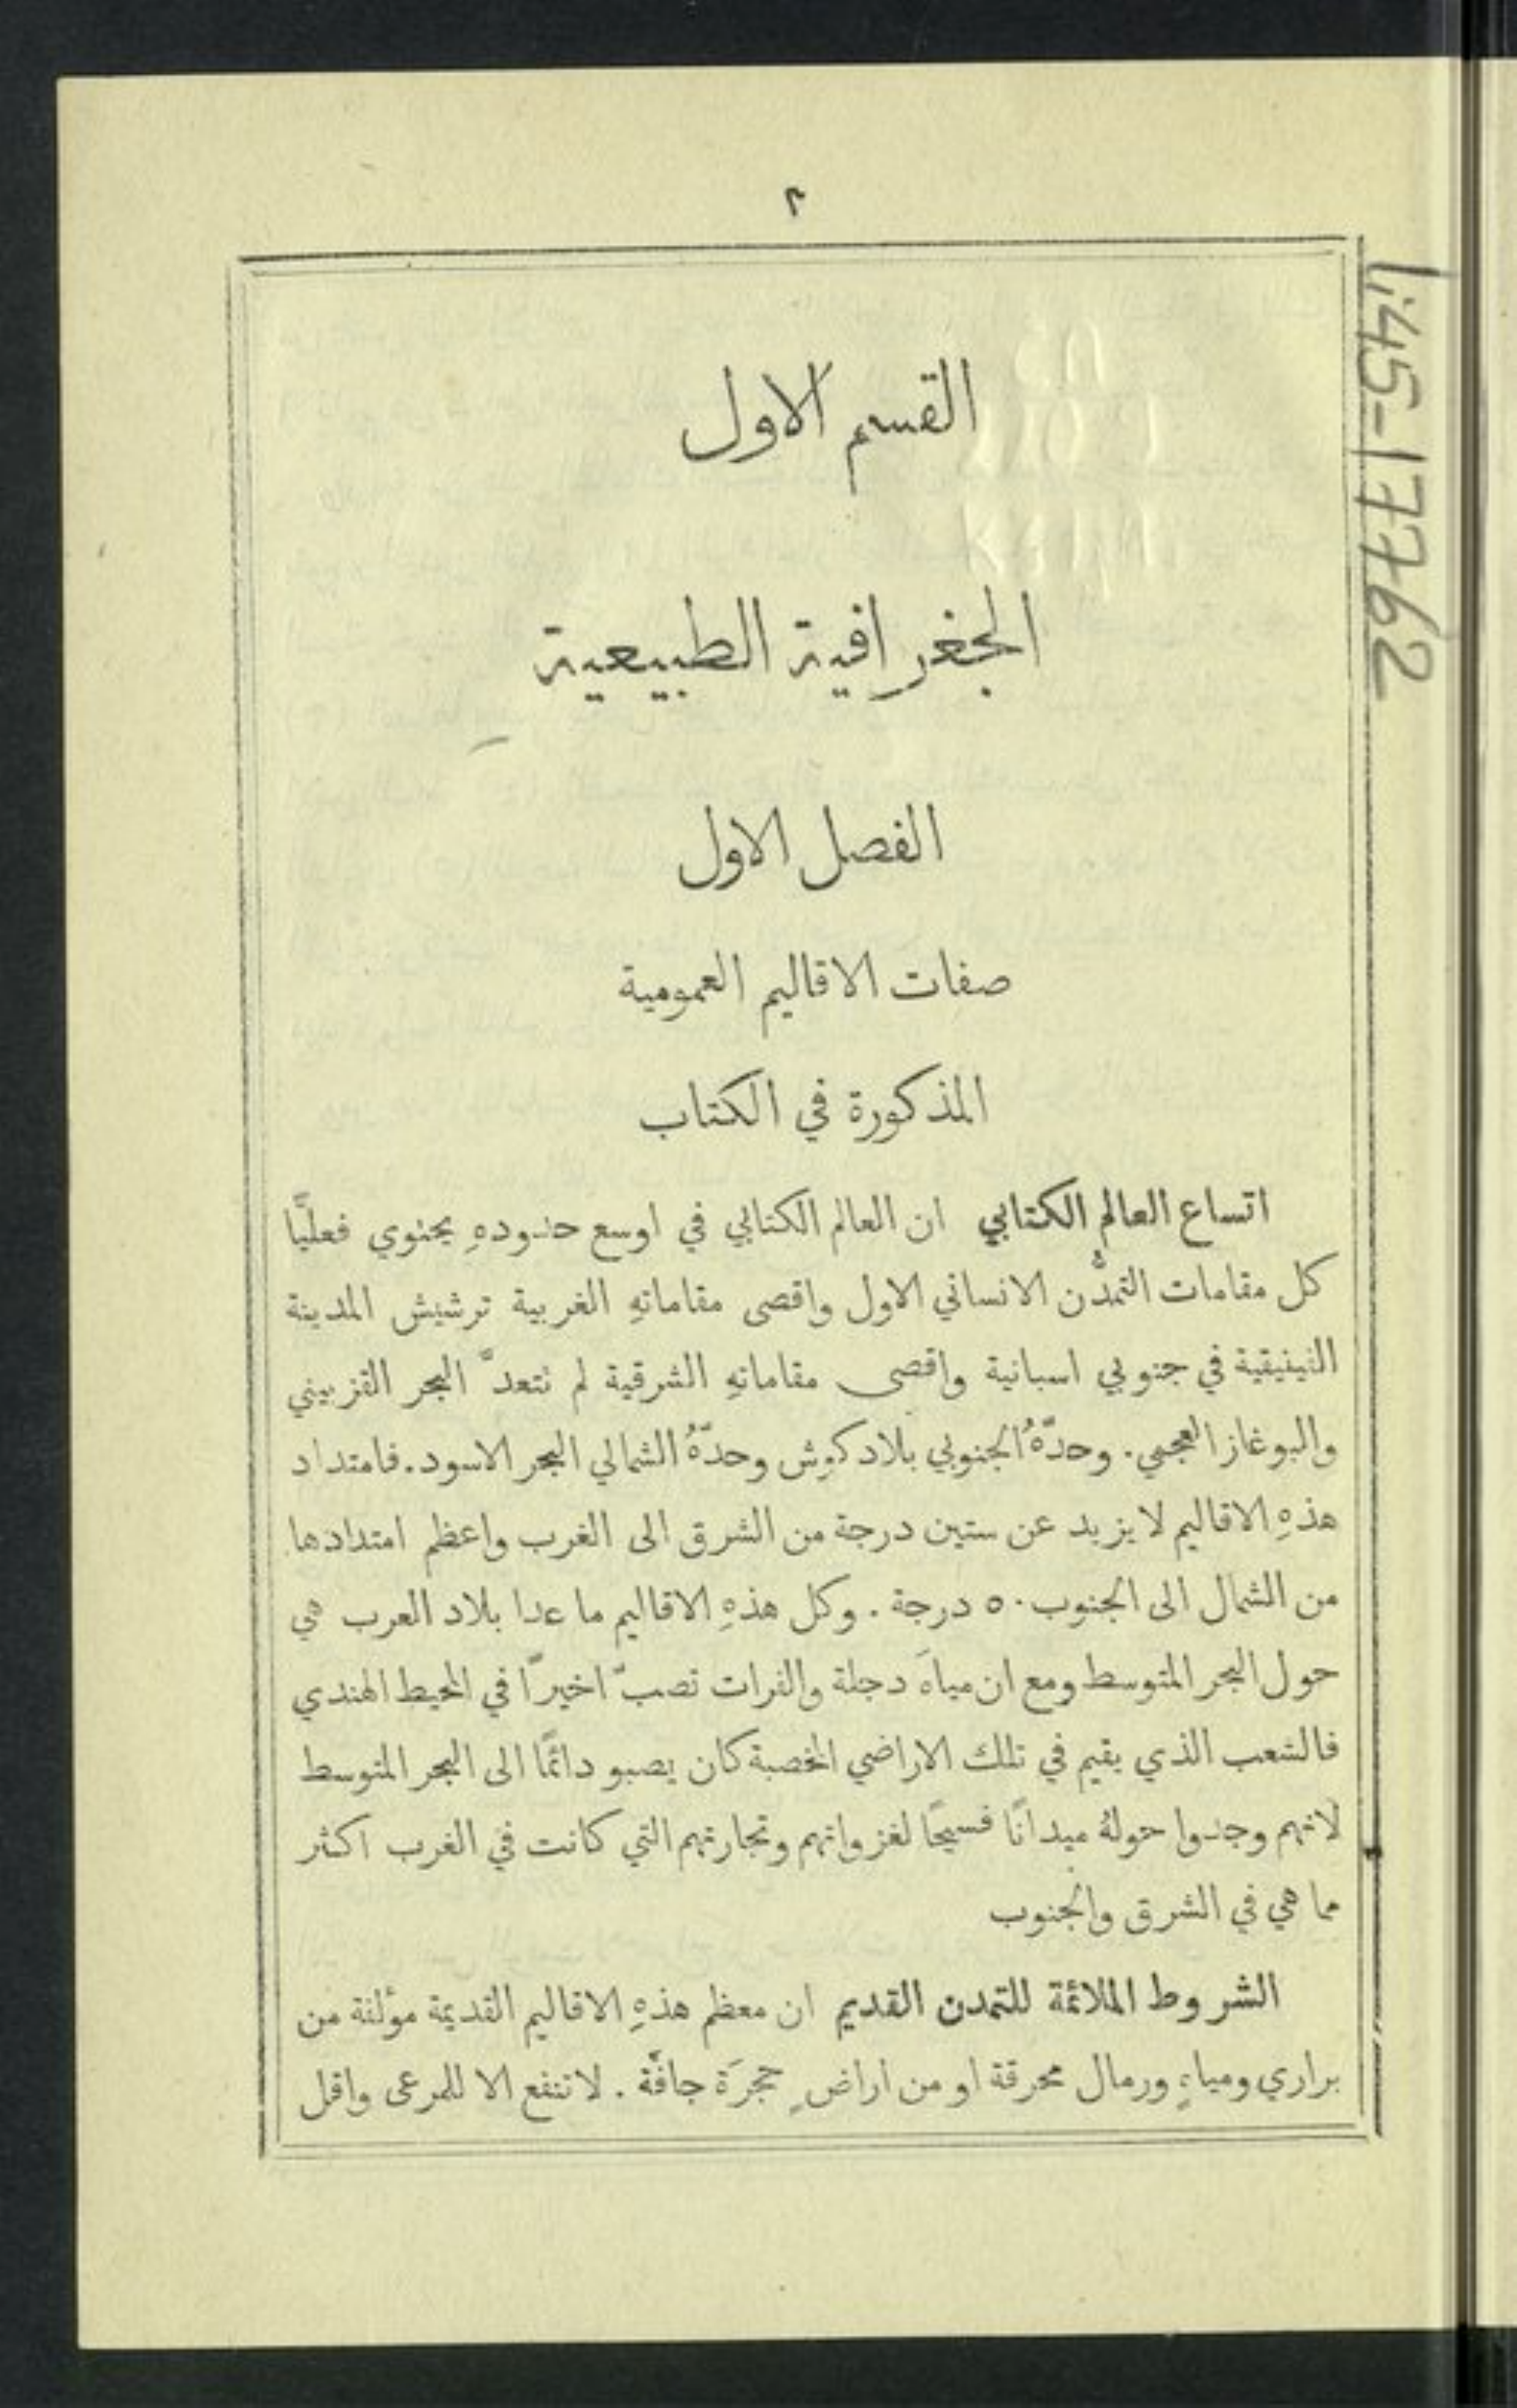 ٢
القسم الاول
الجغرافية الطبيعية
الفصل الاول
صفات الاقاليم العمومية
المذكورة في الكتاب
اتساع العالم الكتابي ان العالم الكتابي في اوسع حدودهِ يحتوي فعليًّا
كل مقامات التمدُّن الانساني الاول واقصى مقاماتهِ الغربية ترشيش المدينة
الفينيقية في جنوبي اسبانية واقصى مقاماتهِ الشرقية لم تتعدَّ البحر القزبيني
والبوغاز العجمي. وحدّهُ الجنوبي بلاد كوش وحدّهُ الشمالي البحر الاسود. فامتداد
هذهِ الاقاليم لا يزيد عن ستين درجة من الشرق الى الغرب واعظم امتدادها
من الشمال الى الجنوب ٥٠ درجة. وكل هذهِ الاقاليم ما عدا بلاد العرب هي
حول البحر المتوسط ومع ان مياهَ دجلة والفرات تصبّ اخيرًا في المحيط الهندي
فالشعب الذي يقيم في تلك الاراضي الخصبة كان يصبو دائمًا الى البحر المتوسط
لانهم وجدوا حولهُ ميدانًا فسيحًا لغزواتهم وتجارتهم التي كانت في الغرب اكثر
مما هي في الشرق والجنوب
الشروط الملائمة للتمدن القديم ان معظم هذهِ الاقاليم القديمة مؤلفة من
براري ومياهٍ ورمال محرقة او من اراضٍ حجرَة جافَّة. لا تنفع الا للمرعى واقل
45-17762